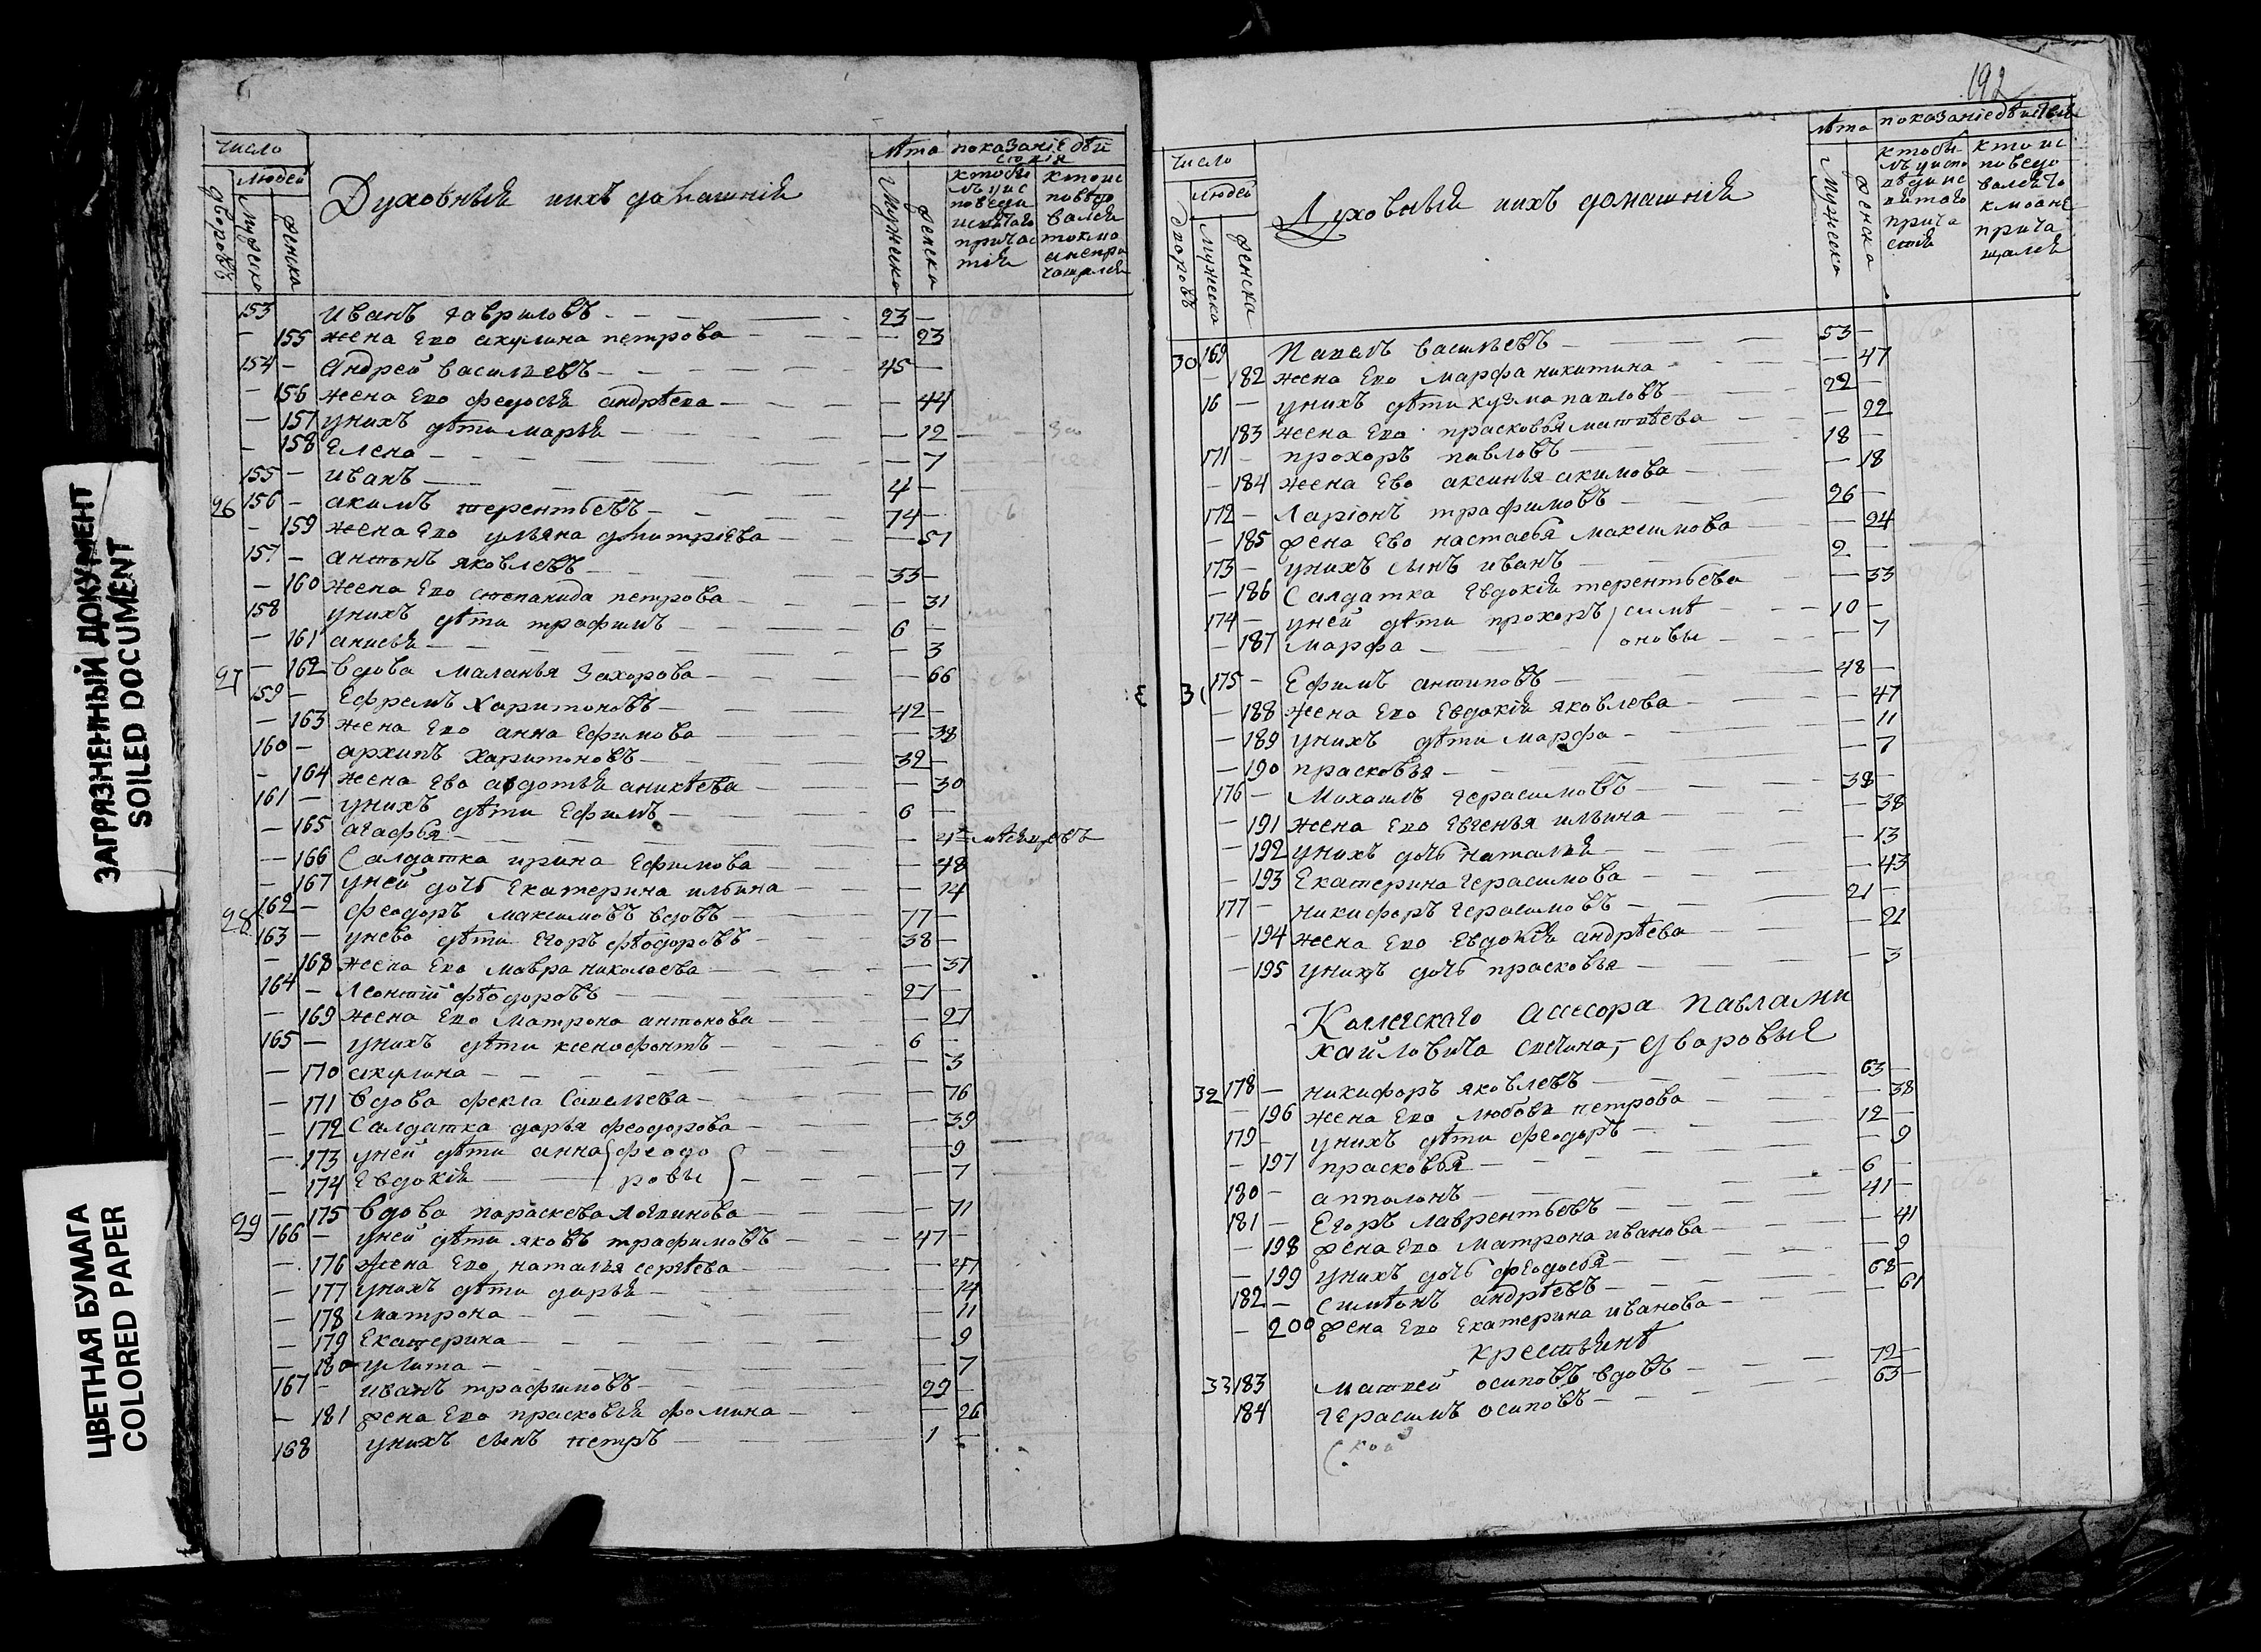 ЗАГРЯЗНЕННЫЙ ДОКУМЕНТ
SOILED DOCUMENT
ЦВЕТНАЯ БУМАГА
COLORED PAPER
число
людей
дворовъ
мужеска
женска
Духовныя ихъ домашнія
лѣта
показаніе дѣй
ствія
мужеска
женска
153 Иванъ гавриловъ 23
155 жена Его акулина петрова 23
154 Андрей васильевъ 45
156 жена Его федосья андрѣева 44
157 унихъ дѣти марья 12
158 Елена 7
155 иванъ 4
26 156 акимъ терентьевъ 74
159 жена Его ульяна дмитріева 51
157 антонъ яковлевъ 33
160 жена Его степанида петрова 31
158 унихъ дѣти трафимъ 6
161 анисья 3
27 162 вдова маланья Захорова 66
159 Ефремъ Харитоновъ 42
163 жена Его анна Ефимова 38
160 архипъ харитоновъ 32
164 жена Ево авдотья аникѣева 30
161 унихъ дѣти Ефимъ 6
165 агафья
166 Салдатка ирина Ефимова 48
167 уней дочь Екатерина ильина 14
28 162 феодоръ максимовъ вдовъ 77
163 унево дѣти Егоръ фѣодоровъ 38
168 жена Его мавра николаева 37
164 Леонтій фѣодоровъ 27
169 жена Его Матрона антонова 27
165 унихъ дѣти ксенофонтъ 6
170 акулина 3
171 вдова фекла Савельева 76
172 Салдатка дарья феодорова 39
173 уней дѣти анна феодо 9
174 Евдокія ровы 7
29 175 вдова параскева Логинова 71
166 уней дѣти яковъ трафимовъ 47
176 жена Его наталья сергѣева 47
177 унихъ дѣти дарья 14
178 матрона 11
179 Екатерина 9
180 улита 7
167 иванъ трафимовъ 29
181 жена Его прасковья фомина 26
168 унихъ сынъ петръ 1
192
число
людей
дворовъ
мужеска
женска
Духовныя ихъ домашнія
лѣта
показаніе дѣйствія
мужеска
женска
30 169 Павелъ васильевъ 53
182 жена Его марфа никитина 47
16 унихъ дѣти кузма павловъ 22
183 жена Его прасковья матвѣева 22
171 прохоръ павловъ 18
184 жена Ево аксинья акимова 18
172 Ларіонъ трафимовъ 26
185 жена Ево настасья максимова 24
173 унихъ сынъ иванъ 2
186 Салдатка Евдокія терентьева 33
174 уней дѣти прохоръ симѣ 10
187 марфа оновы 7
31 175 Ефимъ антиповъ 48
188 жена Его Евдокія яковлева 47
189 унихъ дѣти марфа 11
190 прасковья 7
176 Михаилъ герасимовъ 38
191 жена Его Евгенья ильина 38
192 унихъ дочь наталья 13
193 Екатерина герасимова 43
177 никифоръ герасимовъ 21
194 жена Его Евдокія андрѣева 21
195 унихъ дочь прасковья 3
Павла Ми
хайловича дваровыя
32 178 никифоръ яковлевъ 63
196 жена Его любовь петрова 38
179 унихъ дѣти феодоръ 12
197 прасковья 9
180 апполонъ 6
181 Егоръ лаврентьевъ 41
198 жена Его матрона иванова 41
199 унихъ дочь феодосья 9
182 Симѣонъ андрѣевъ 68
200 жена Его Екатерина иванова 61
крестьянѣ
33 183 матвей осиповъ вдовъ 72
184 герасимъ осиповъ 63